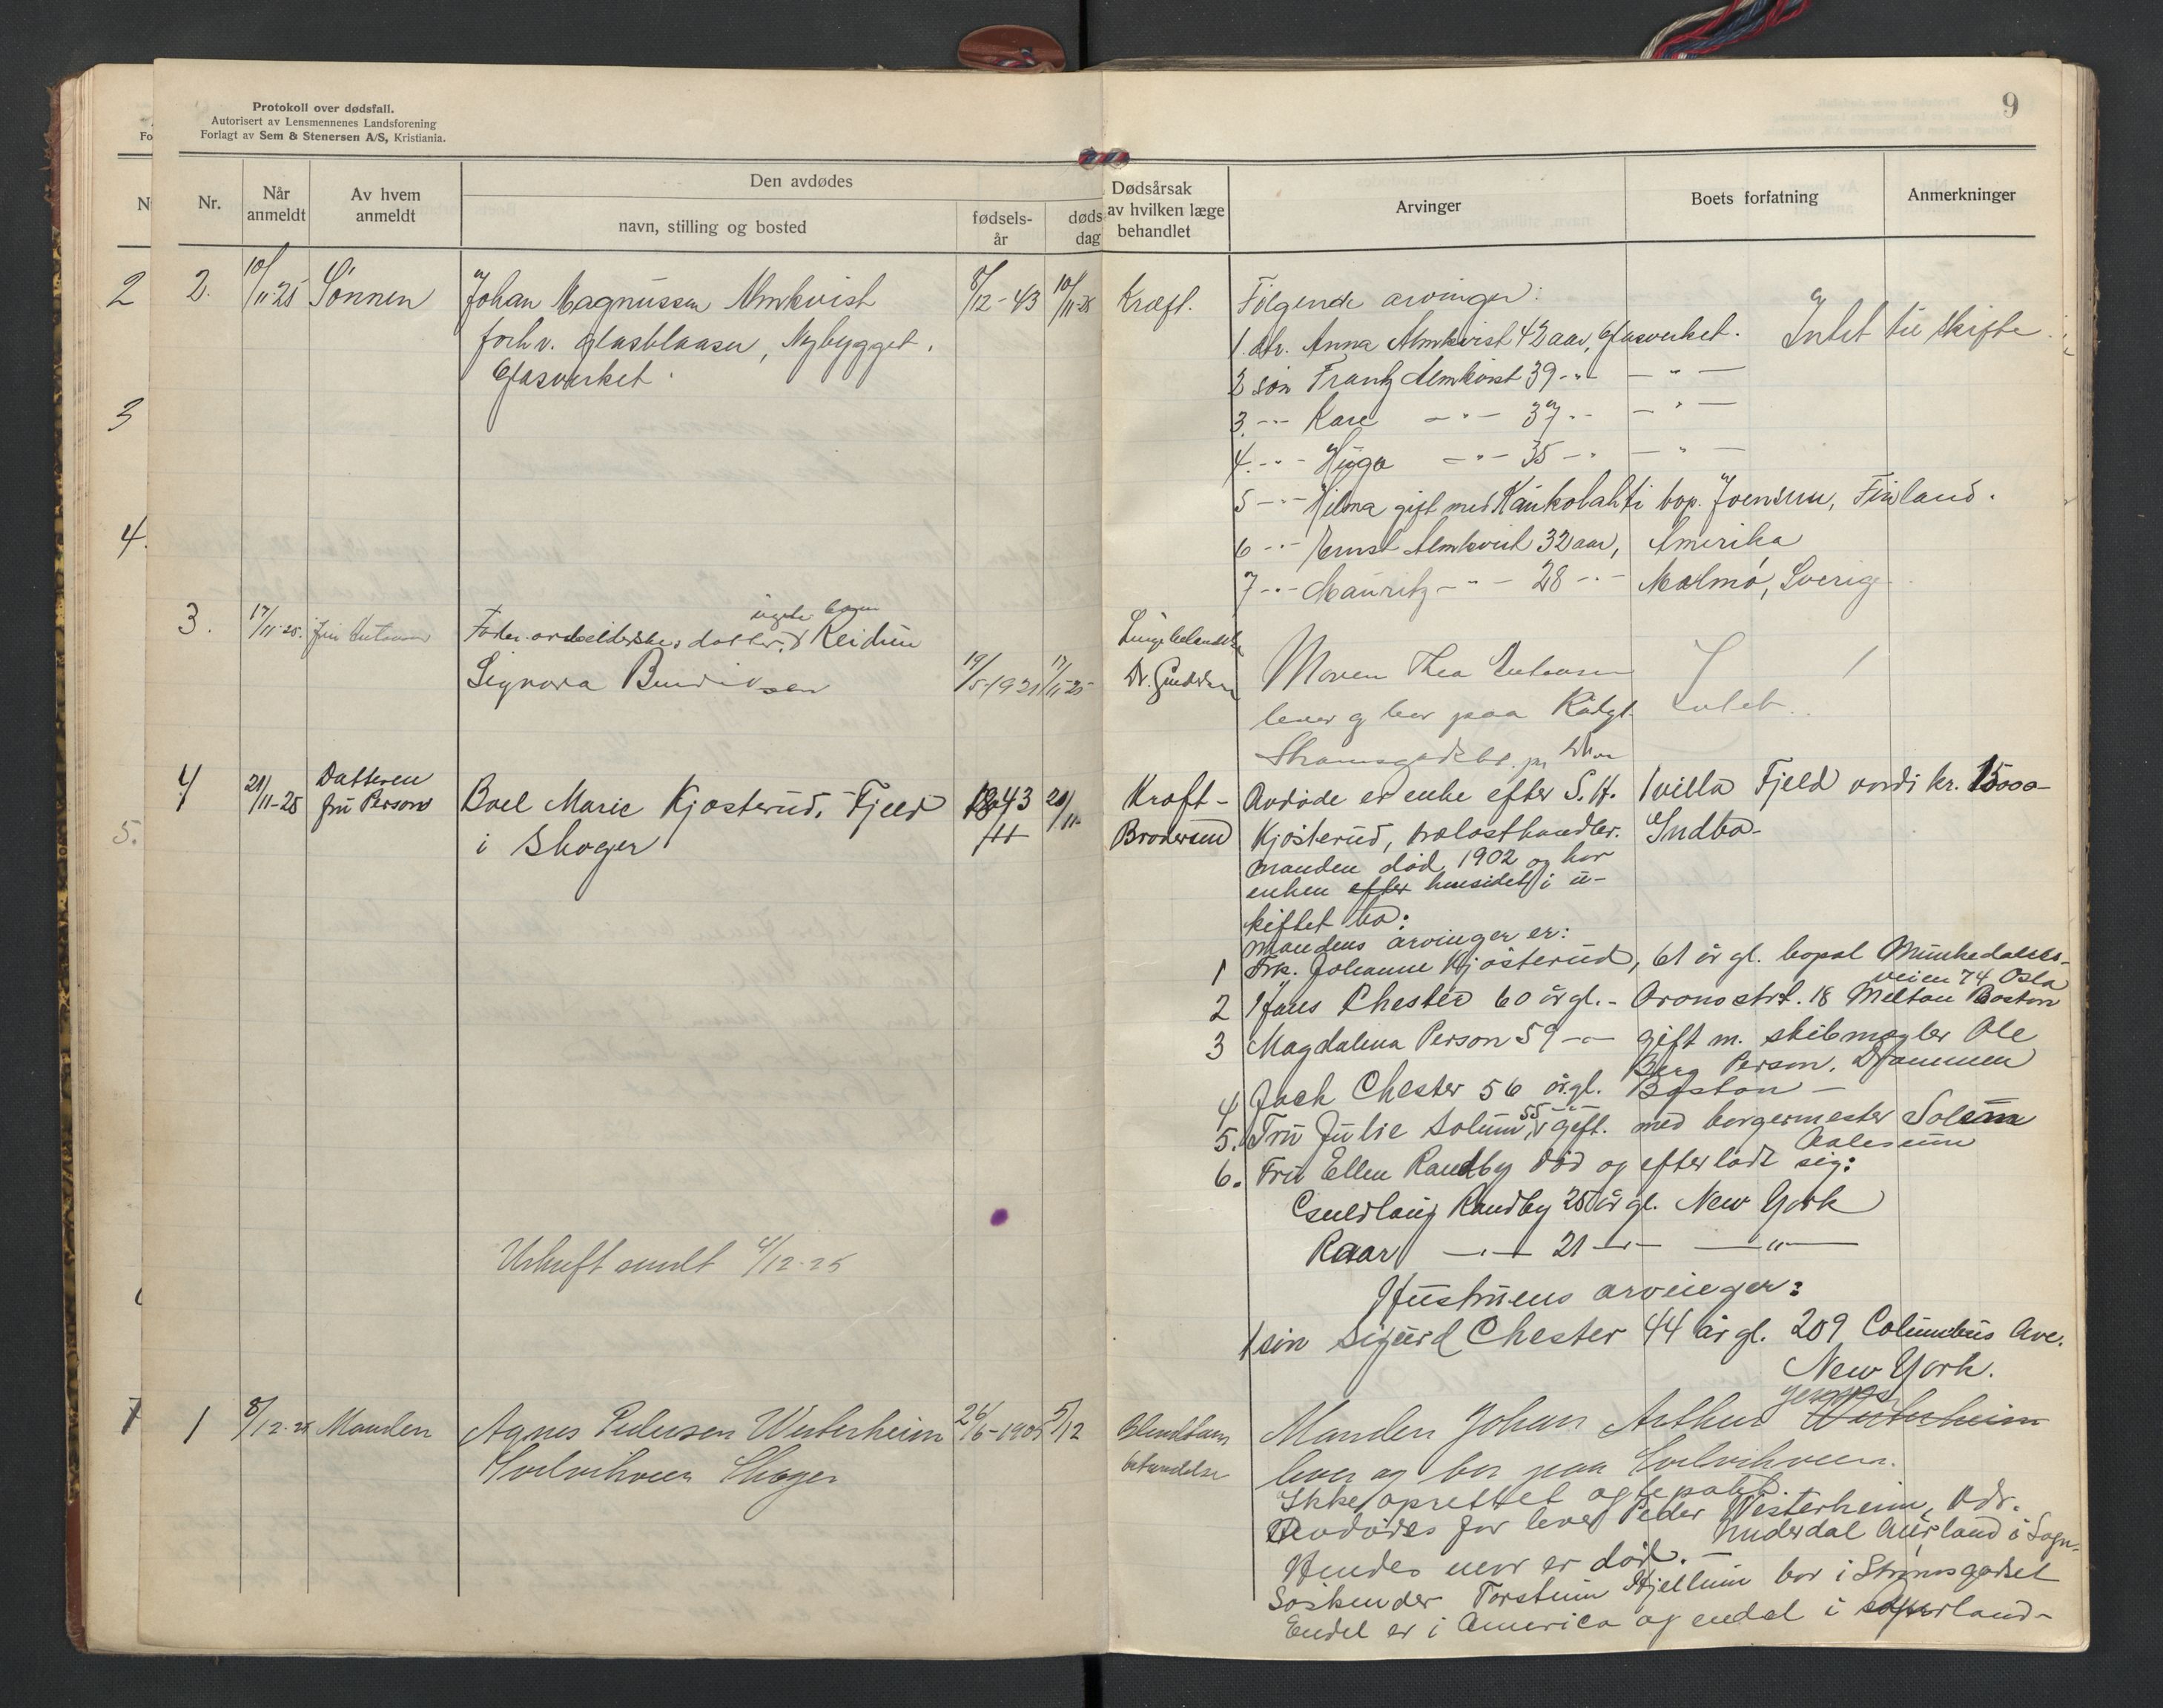 Protokoll over dødsfall.
Autorisert av Lensmennenes Landsforening
Forlagt av Sem & Stenersen A/S, Kristiania.
Fo
N
9
Nr.
Når anmeldt
Av hvem anmeldt
Den avdødes
navn, stilling og bosted
fødsels-år
døds dag
Dødsårsak
av hvilken læge
behandlet
Arvinger
Boets forfatning
Anmerkninger
2
3
4.
5.
7
2. 10/11-25 Sønnen Johan Magnussen Almkvist 8/12-43 10/11-25 Kræft.
forhv. glasblaaser, Nybygget.
Glasverket.
Følgende arvinger:
1. dtr. Anna Almkvist 42 aar, Glasverket. Intet til skifte
2 søn Frantz Almkvist 39 -"- - " -
3. -"- Kare -"- 37 -"- - " -
4. -"- Hugo -"- 35 -"- - " -
5 -"- Hilma gift med Kaukolahti bop. Joensuu, Finland.
6 -"- Ernst Almkvist 32 aar, Amerika
7 -"- Mauritz -"- 28 -"- Malmø, Sverige
3. 17/11-25.
ugte barn
datter. Reidun
Signora 19/5-1921 17/11-25
Dr.
Moren Thea
lever og bor paa
Intet
4 21/11-25 Datteren fru Person Boel Marie Kjøsterud, Fjeld 1843 20/11
i Skoger
Kræft-
Brodersen
Avdøde er enke efter S. H. 1 villa Fjeld verdi kr. 15000-
Kjøsterud, trælasthandler. Indbo-
manden død 1902 og har
enken efter hensidet i u-
skiftet bo:
Mandens arvinger er:
1 Frk. Johanne Kjøsterud, 61 år gl. bopal Munkedams-
veien 74 Oslo
2 Hans Chester 60 år gl. - Orono strt. 18 Melton Boston
3 Magdalena Person 59 -"- gift m. skibmegler Ole
Berg Person, Drammen
4 Jack Chester 56 år gl. Boston -
5. Fru Julie Solum, 55 -"- gift. med borgermester Solum
Aalesund
6. Fru Ellen Randby død og efterladt sig:
Randby 25 år gl. New York
Roar -"- 21 -"- -"-
Hustruens arvinger:
1 søn Sigurd Chester 44 år gl. 209 Columbus Ave.
New York.
Utskrift sendt 4/12-25
1 8/12-25 Manden Agnes Pedersen Westerheim 26/6-1905 5/12
Skoger
Blindtarm
betændelse
Manden Johan Arthur Westerheim
lever og bor paa
Ikke oprettet
Avdødes far lever Peder Westerheim, adr.
Underdal Aurland i Sogn.
Hendes mor er død. -
Søskender Torstein Hjellum bor i Strømsgodset
Endel er i America og endel i Aurland-